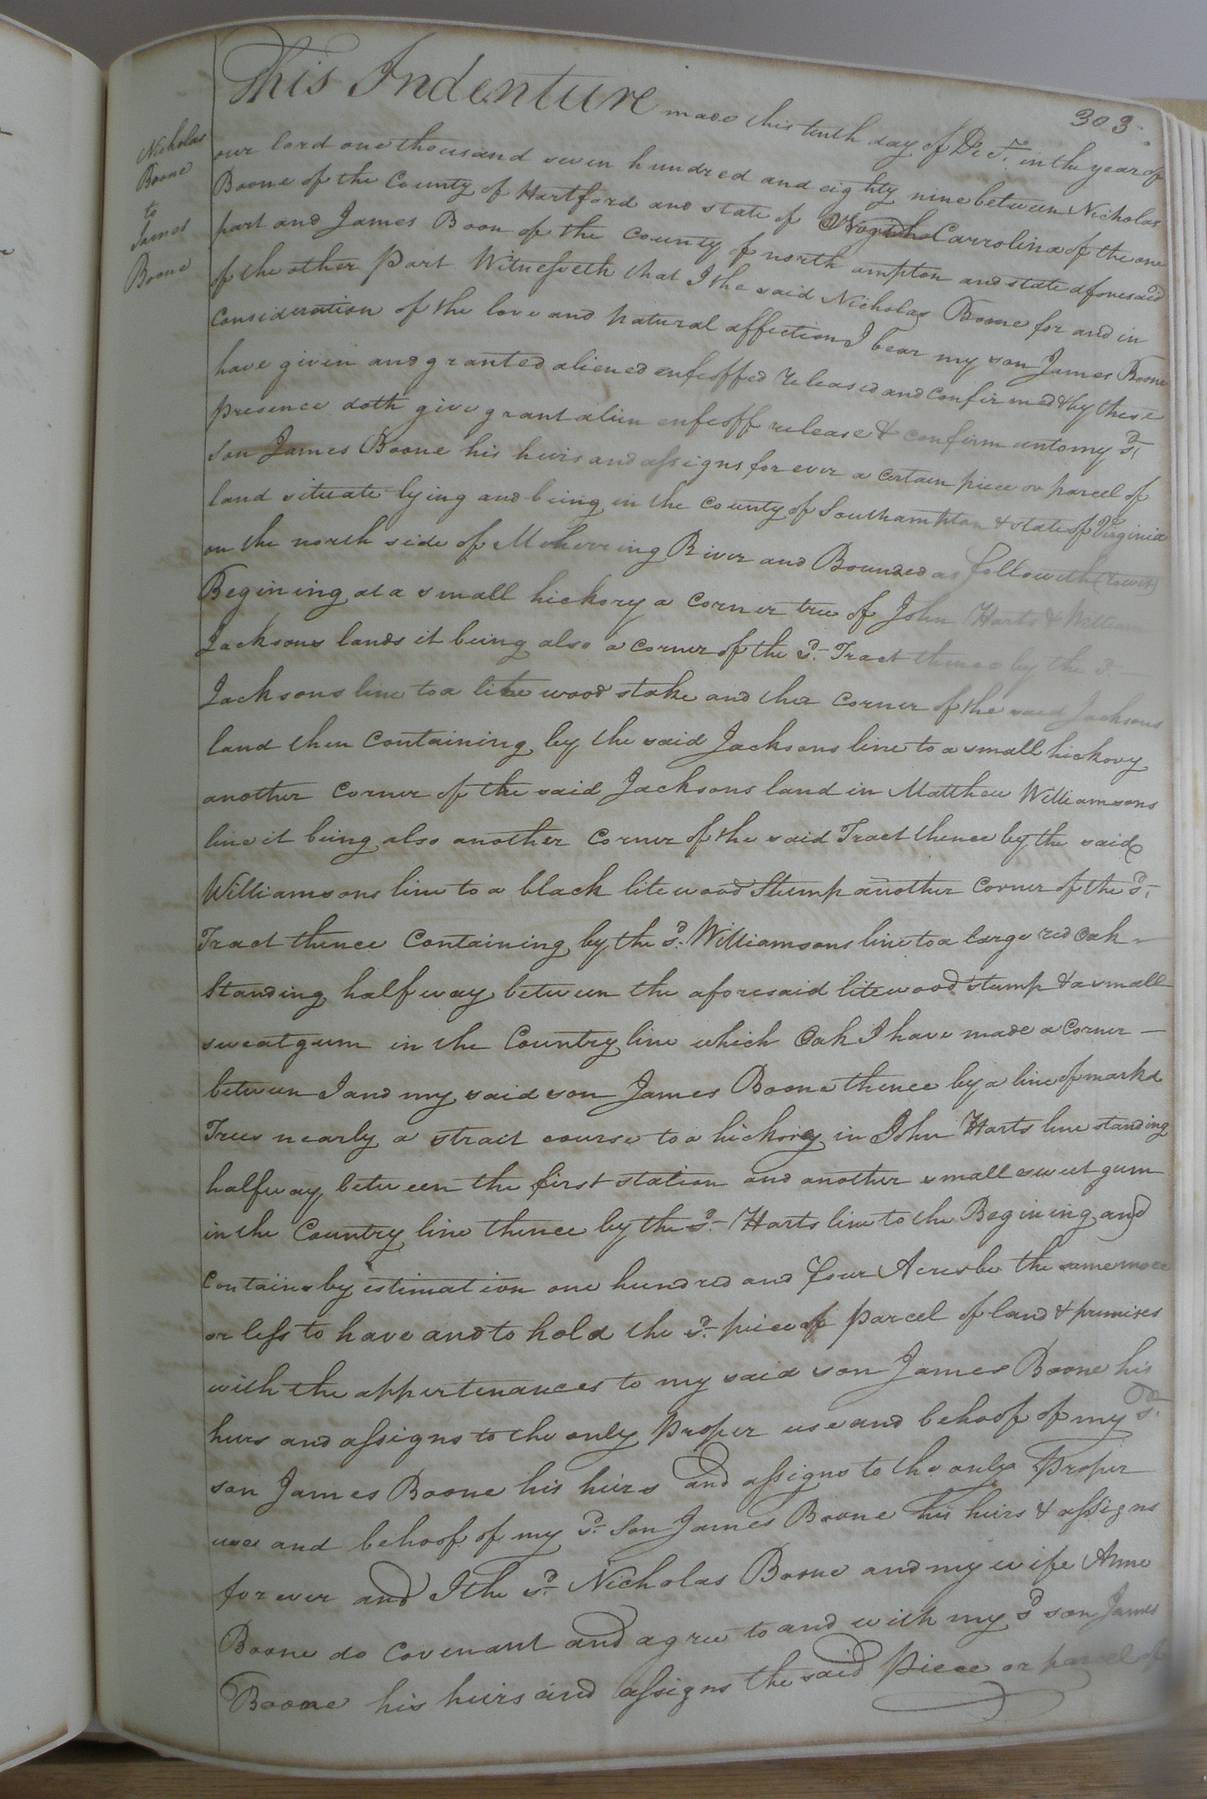 303
Nicholas
Boone
to
James
Boone
This Indenture made this tenth day of Decr. in the year of
our lord one thousand seven hundred and eighty nine between Nicholas
Boone of the County of Hartford and state of North Carrolina of the one
part and James Boon of the County of north ampton and state aforesaid
of the other part Witnesseth that I the said Nicholas Boone for and in
Consideration of the love and natural affection I bear my son James Boone
have given and granted aliened enfeoffed released and confirmed & by these
presence doth give grant alien enfeoff release & confirm unto my sd.
son James Boone his heirs and assigns for ever a certain piece or parcel of
land situate lying and being in the County of Southampton & state of Virginia
on the north side of Meherring River and Bounded as followith (towit)
Begining at a small hickory a corner tree of John Harts & William
Jacksons lands it being also a corner of the sd. Tract thence by the sd
Jacksons line to a lite wood stake and ther corner of the said Jacksons
land then Containing by the said Jacksons line to a small hickory
another Corner of the said Jacksons land in Matthew Williamsons
line it being also another Corner of the said Tract thence by the said
Williamsons line to a black litewood Stump another Corner of the sd.
Tract thence Containing by the sd. Williamsons line to a large red oak
Standing halfway between the aforesaid litewood stump & a small
sweatgum in the Country line which Oak I have made a Corner
between I and my said son James Boone thence by a line of markd
Trees nearly a strait course to a hickory in John Harts line standing
halfway between the first station and another small sweet gum
in the Country line thence by the sd. Harts line to the Begining and
Contains by estimation one hundred and four Acres be the same more
or less to have and to hold the sd. piece of parcel of land & premises
with the appertenances to my said son James Boone his
heirs and assigns to the only proper use and behoof of my sd.
son James Boone his heirs and assigns to the only Proper
use and behoof of my sd. Son James Boone his heirs & assigns
forever and I the sd. Nicholas Boone and my wife Anne
Boone do Covenant and agree to and with my sd son James
Boone his heirs and assigns the said piece or parcel of